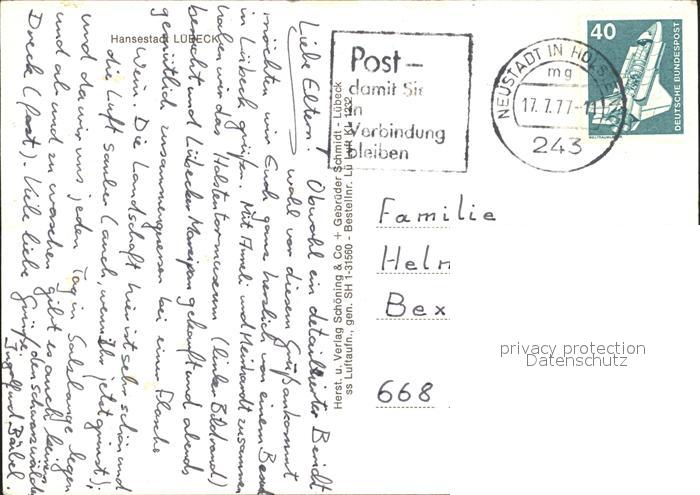 Hansestadt LÜBECK
Liebe Eltern! Obwohl ein detaillierter Bericht
wohl vor diesem Gruß ankommt
möchten wir Euch ganz herzlich von einem Besuch
in Lübeck grüßen. Mit Anneli und Meinhardt zusammen
haben wir das Holstentormuseum (linker Bildrand)
besucht und Lübecker Marzipan gekauft und abends
gemütlich zusammengesessen bei einer Flasche
Wein. Die Landschaft hier ist sehr schön und
die Luft sauber (auch, wenn Ihr jetzt grinst);
und da wir uns jeden Tag in Salzlauge legen
und ab und zu waschen gibt es auch keinen
Dreck (fast). Viele liebe Grüße, den Schwarzwäldern
Ingolf und Bärbel.
Herst. u. Verlag Schöning & Co + Gebrüder Schmidt - Lübeck
ss Luftaufn., gen. SH 1-31560 - Bestellnr. Lü Luft KL 1292
Post –
damit Sie
in
Verbindung
bleiben
NEUSTADT IN HOLST
mg
17.7.77-11
243
40
DEUTSCHE BUNDESPOST
Familie
Helm
Bex
668
privacy protection
Datenschutz